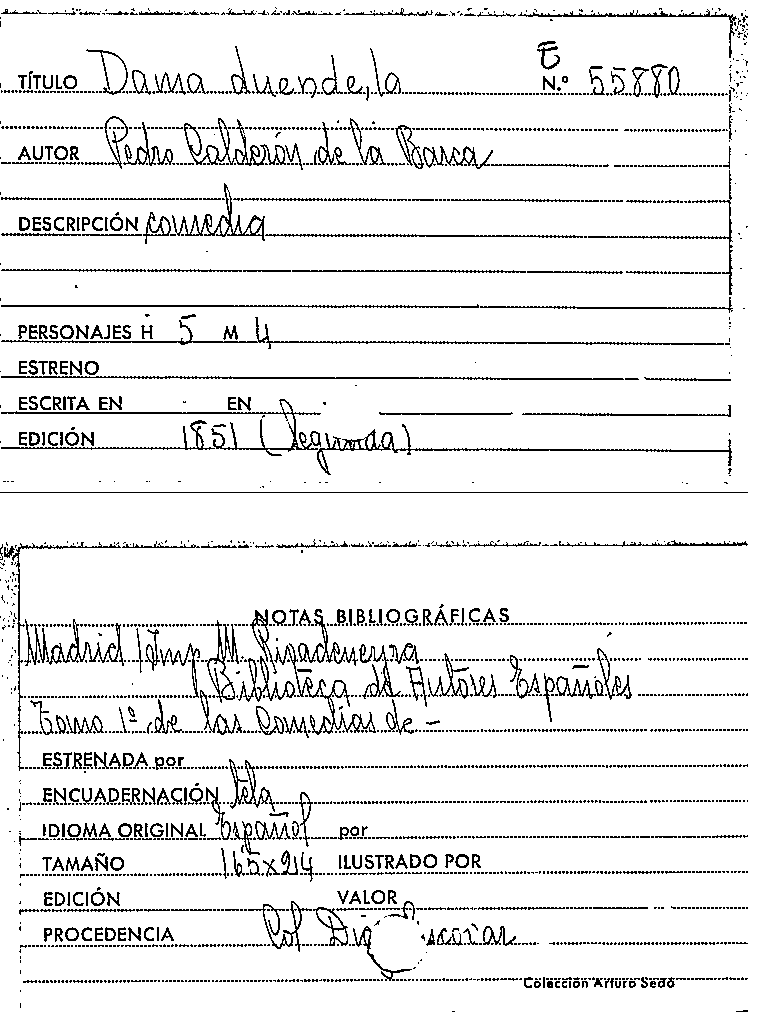 E
TÍTULO Dama duende, la N.º 55880
AUTOR Pedro Calderón de la Barca
DESCRIPCIÓN comedia
PERSONAJES H 5 M 4
ESTRENO
ESCRITA EN EN
EDICIÓN 1851 (Segunda)
NOTAS BIBLIOGRÁFICAS
Madrid / Imp M. Rivadeneyra
Biblioteca de Autores Españoles
Tomo 1º de las Comedias de -
ESTRENADA por
ENCUADERNACIÓN tela
IDIOMA ORIGINAL Español por
TAMAÑO ILUSTRADO POR
EDICIÓN VALOR
PROCEDENCIA Col
Colección Arturo Sedó